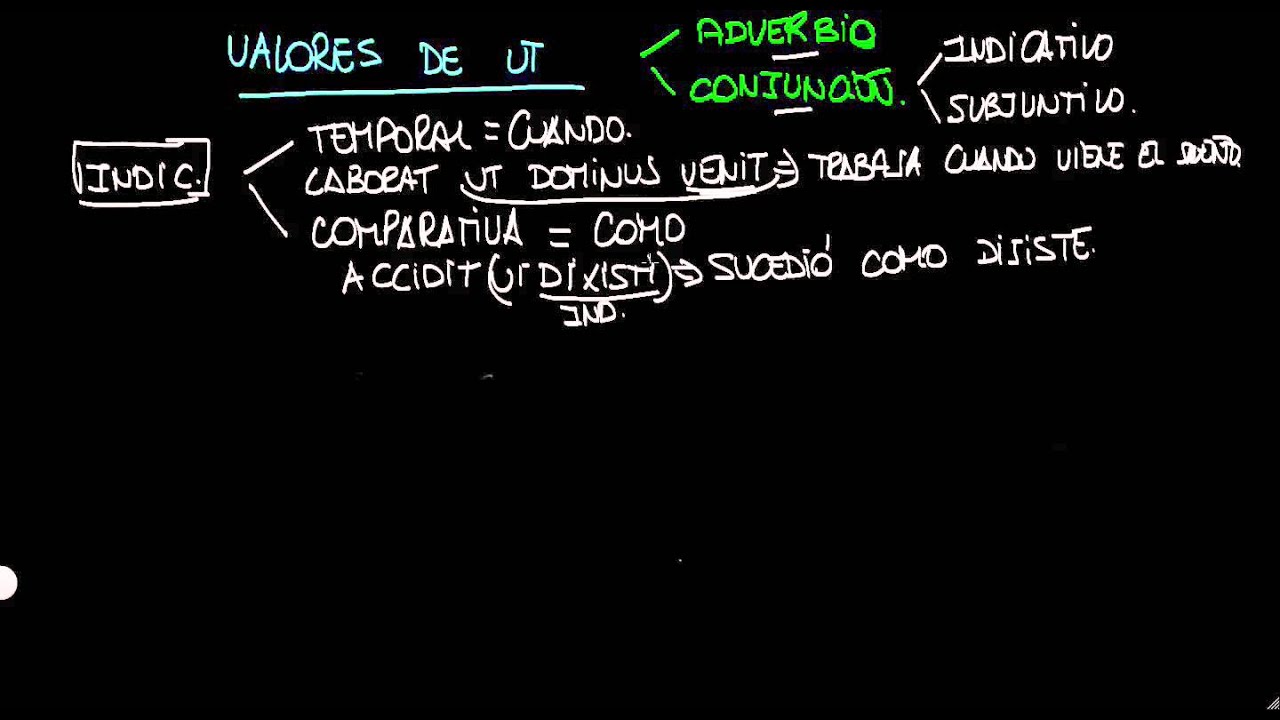 VALORES DE UT
ADVERBIO
CONJUNCIÓN.
INDICATIVO
SUBJUNTIVO.
INDIC.
TEMPORAL = CUANDO.
LABORAT UT DOMINUS VENIT ⇒ TRABAJA CUANDO VIENE EL
COMPARATIVA = COMO
ACCIDIT (UT DIXISTI) ⇒ SUCEDIÓ COMO DIJISTE.
IND.